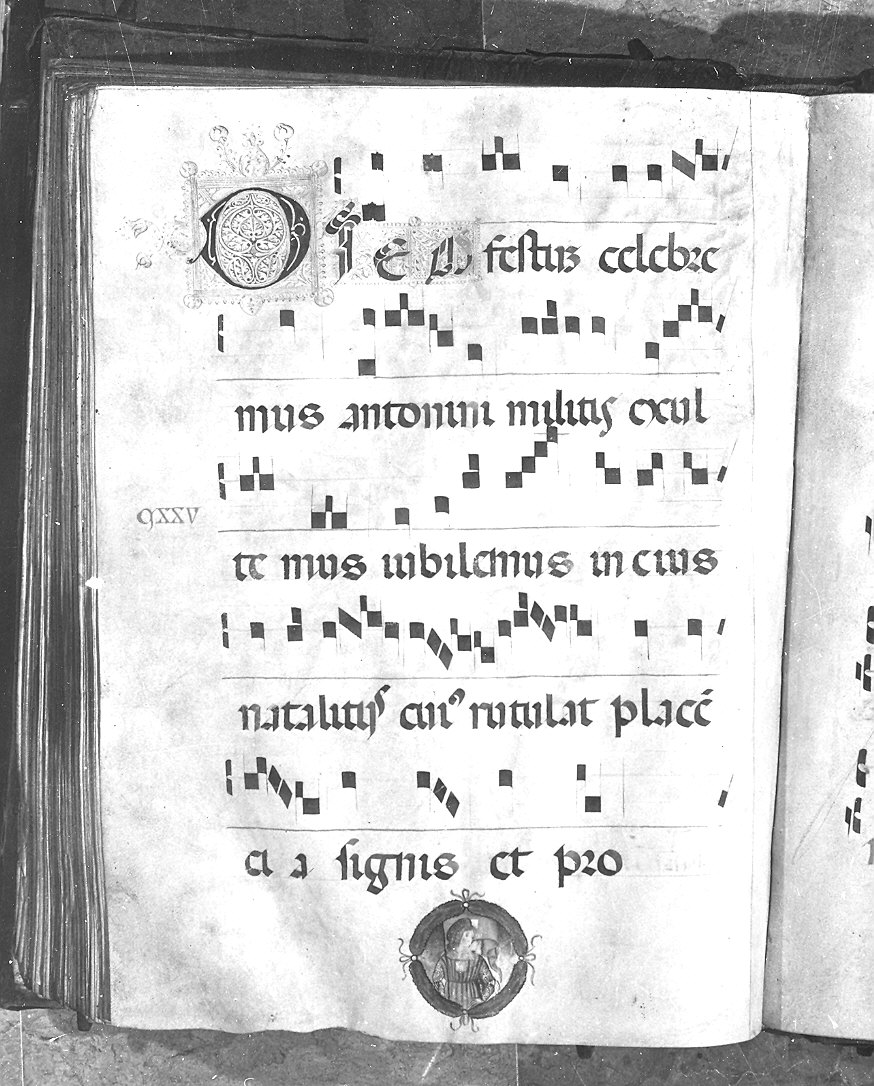 DIEM festuȝ celebre
mus antonini militis exul
te mus iubilemus in eius
cxxv
natalitijs cuiꝰ rutulat placē
ci a signis et pro